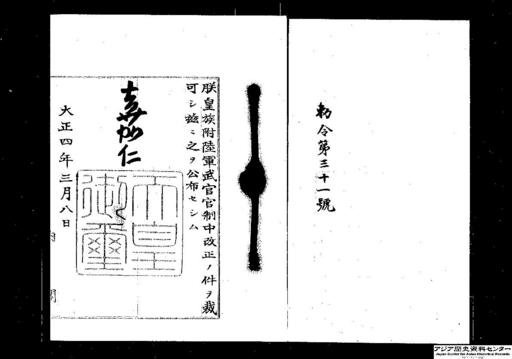 勅令第三十一號
朕皇族附陸軍武官官制中改正ノ件ヲ裁
可シ玆ニ之ヲ公布セシム
嘉仁
天皇
御璽
大正四年三月八日
内閣
アジア歴史資料センター
Japan Center for Asian Historical Records